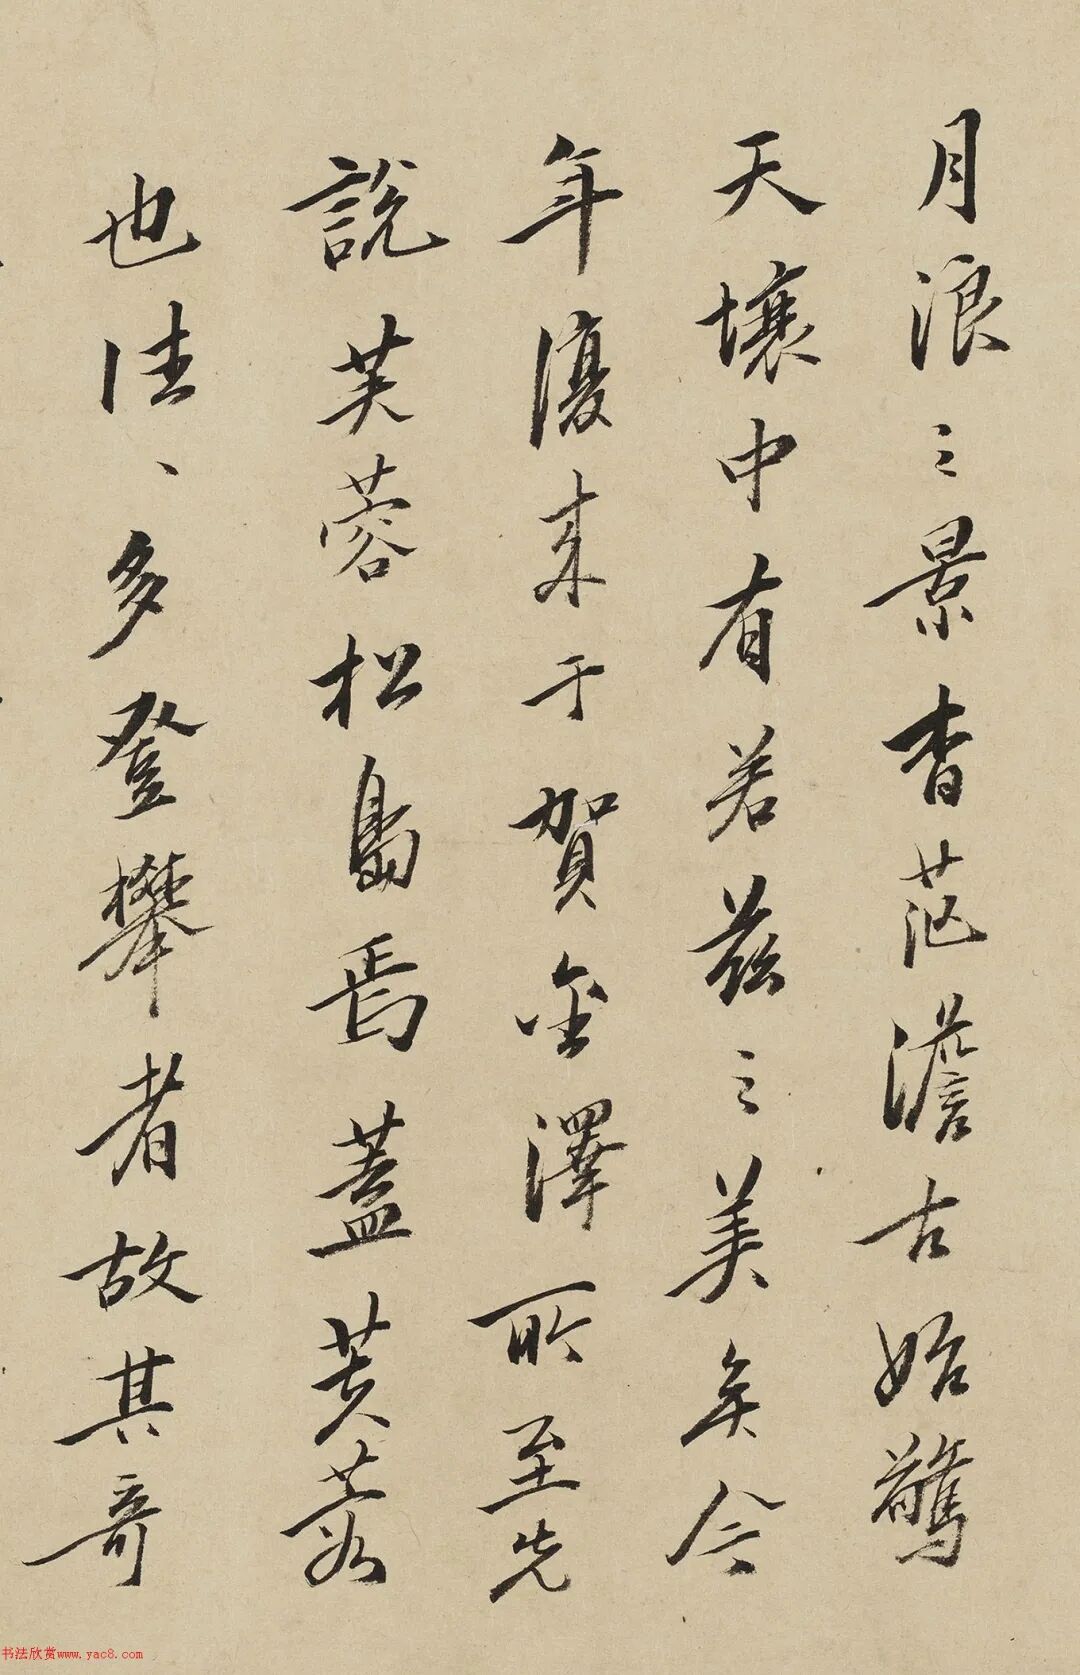 月浪之景杳茫澹古始驚
天壤中有若茲之美矣今
年復来于賀金澤所至先
說芙蓉松島焉蓋芙蓉
也往〻多登攀者故其奇
书法欣赏www.yac8.com